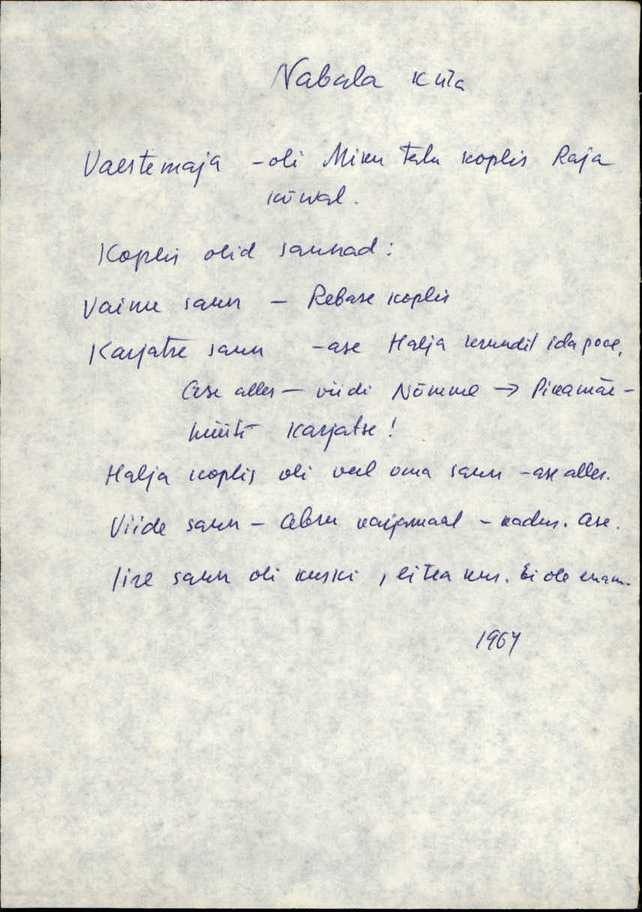 Nabala küla
Vaestemaja - oli Miku talu koplis Raja
kõrval.
Koplis olid saunad:
Vainu saun - Rebase koplis
Karjatse saun - ase Halja krundil ida pool,
Ase alles - viidi Nõmme → Pikamäe -
hüüti Karjatse!
Halja koplis oli veel oma saun - ase alles.
Viide saun - Abru karjamaal - kadus. Ase.
saun oli kuski, ei tea kus. Ei ole enam.
1967